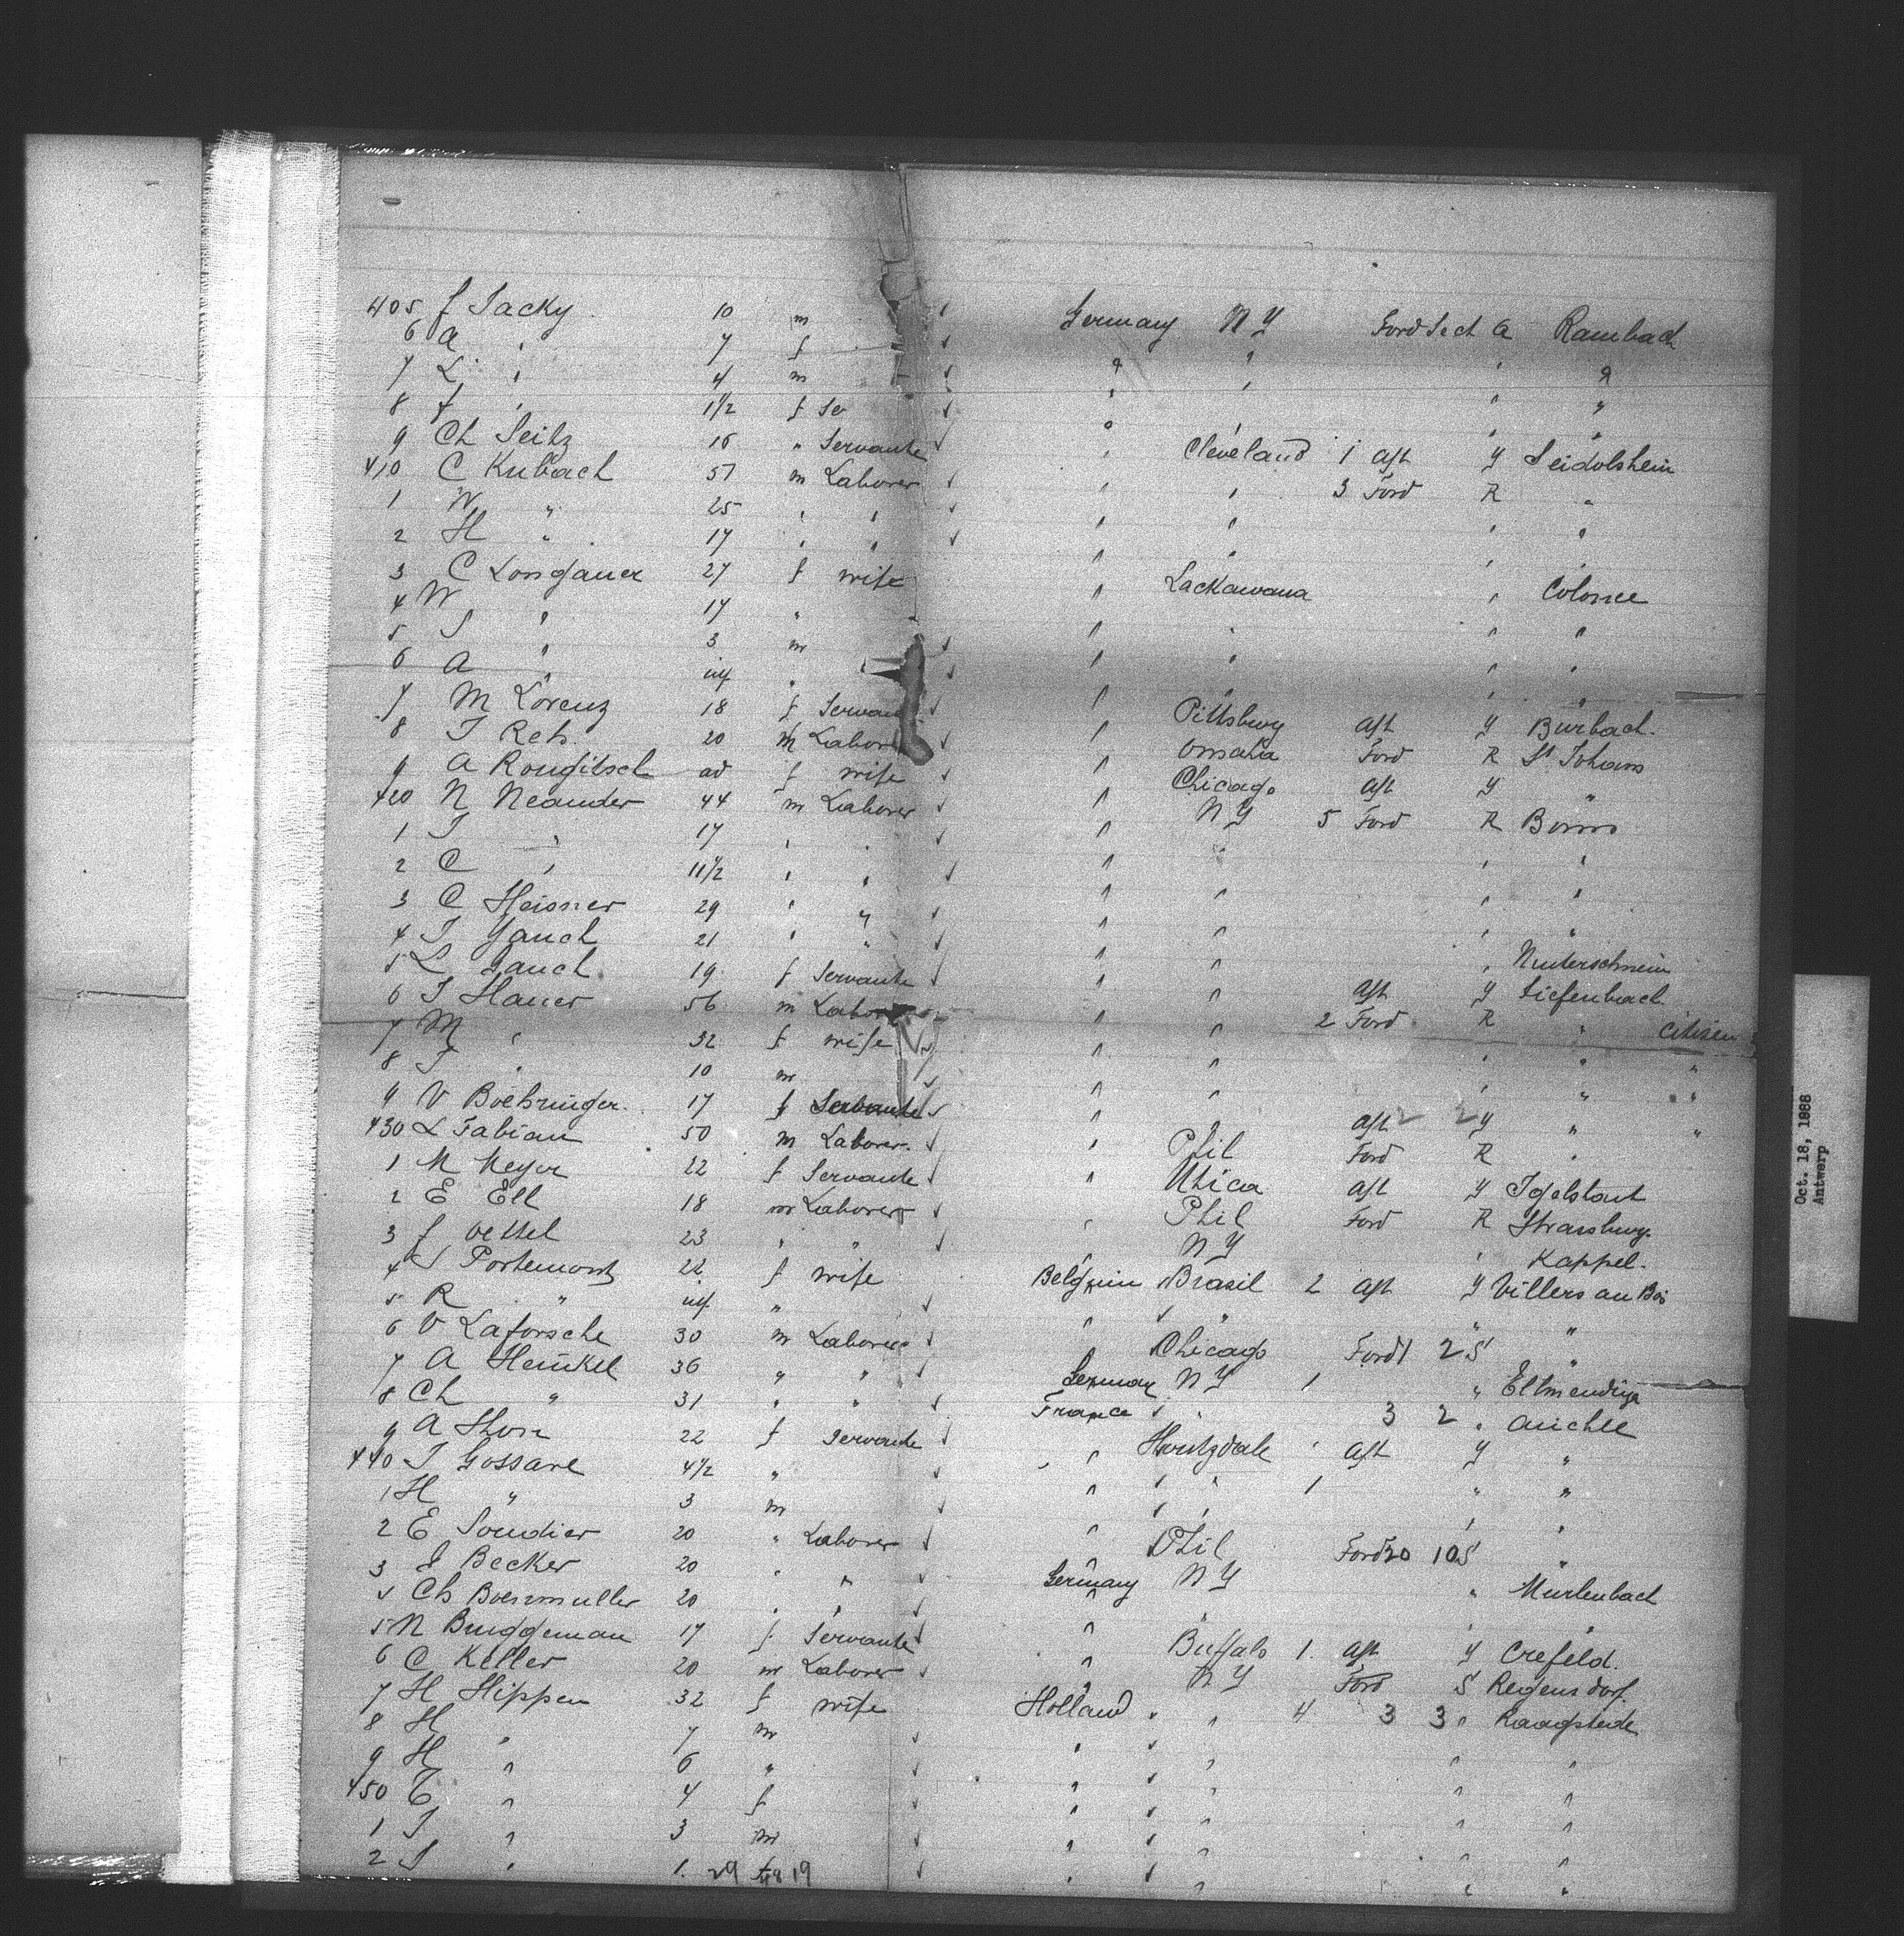 405 J Sacky 10 m Germany NY Ford Sect A Rambach
6 A " 7 f " " " "
7 L " 4 m " " " "
8 f " 1 1/2 f Se " " " "
9 Ch Seitz 16 " Servante " Cleveland 1 Aft Y Seidolsheim
410 C Kubach 57 m Laborer " " 3 Ford R "
1 W " 25 " " " " " "
2 H " 17 " " " " " "
3 C Longauer 27 f wife " Lackawana " Colonee
4 W " 17 " " " " "
5 S " 3 m " " " "
6 A " inf " " " " "
7 M Lorenz 18 f Servan " Pittsburg Aft Y Burbach.
8 J Reh. 20 m Labore " Omaha Ford R St Johans
9 A Rougitsch ad f wife " Chicago Aft Y "
420 N Neander 44 m Laborer " NY 5 Ford R Bonns
1 J " 17 " " " " " "
2 C " 11 1/2 " " " " " "
3 C Heisner 29 " " " " " "
4 J Jauch 21 " " " " "
5 L Jauch 19 f Servante " " Aft Y Tiefenbach
6 J Hauer 56 m Labor " " 2 Ford R " Citizen
7 M " 32 f wife " " " " "
8 J " 10 m " " " " "
9 V Boehringer 17 f Servante " " Aft 2 2 Y " "
430 L Fabian 50 m Laborer " Phil Ford R "
1 M Meyer 22 f Servante " Utica Aft Y Igelstaut
2 E Ell 18 m Laborer " Phil Ford R Strassburg.
3 J Oettel 23 " " NY " Kappel.
4 S Portemont 22 f wife Belgium Brasil 2 Aft Y Villers au Bois
5 R " inf " " " " "
6 V Laforsche 30 m Laborer " Chicago Ford 1 2 S "
7 A Heinkel 36 " " Germany NY 1 " Ellmendinge
8 Ch " 31 " " France " 3 2 " Auchlle
9 A Thon 22 f Servante " Houtzdale " Aft Y "
440 J Gossare 4 1/2 " " " 1 " "
1 H " 3 m " " " "
2 E Soudier 20 " Laborer " Phil Ford 20 10 S "
3 E Becker 20 " " Germany NY " Murlenbach
4 Ch Boenmuller 20 " " " " " "
5 N Bruggeman 17 f Servante " Buffalo 1. Aft Y Crefeld.
6 C Keller 20 m Laborer " NY Ford S Regensdorf.
7 H Hippen 32 f wife Holland " 4 3 3 " Raagstede
8 H " 7 m " " " "
9 H " 6 " " " " "
450 T " 4 f " " " "
1 J " 3 m " " " "
2 S " 1. 29 48 19 " " " "
Oct. 18, 1888
Antwerp